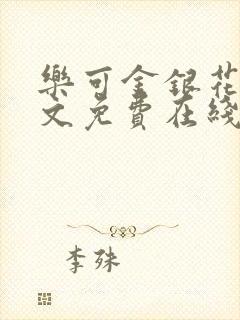 樂可金銀花
文免費在綫
李殊